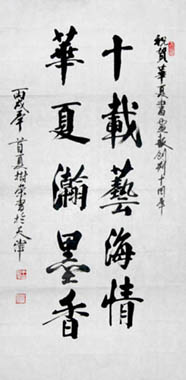 祝賀華夏書畫報創刊十周年
十載藝海情
華夏瀚墨香
丙戌年首夏樹榮書於天津